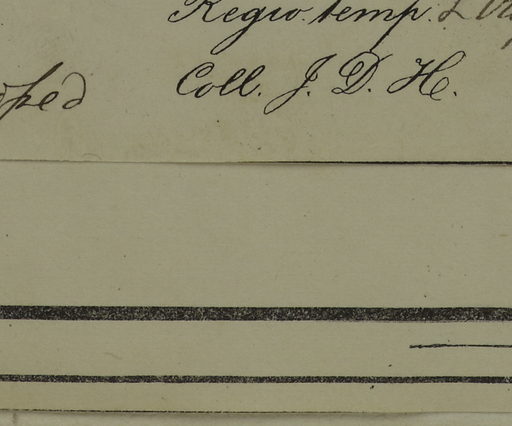 Regio. temp. &
Coll. J. D. H.